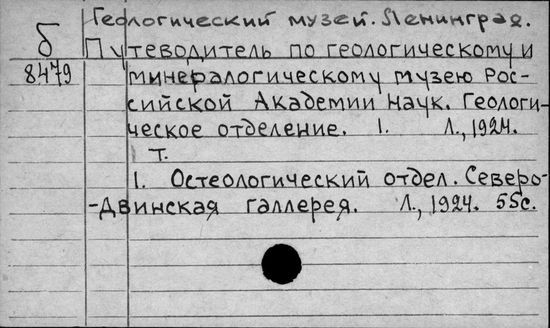 Геологический музей. Ленинград.
б Путеводитель по геологическому и
8479 минералогическому музею Рос-
сийской Академии наук. Геологи-
ческое отделение. 1. Л., 1924.
т.
1. Остеологический отдел. Северо-
-Двинская галлерея. Л., 1924. 55с.